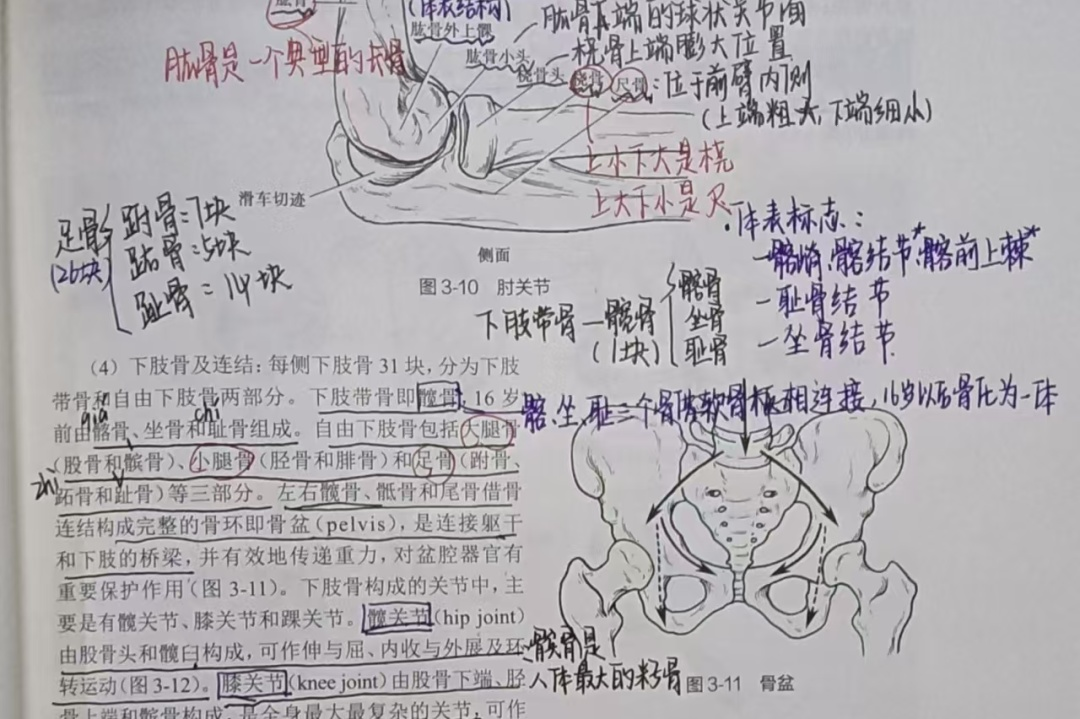 肱骨
(体表结构)
肱骨外上髁
肱骨小头
桡骨头
桡骨
尺骨
肱骨是一个典型的长骨
肱骨末端的球状关节面
桡骨上端膨大位置
:位于前臂内侧
(上端粗大,下端细小)
上小下大是桡
上大下小是尺
滑车切迹
侧面
图3-10 肘关节
足骨
(26块)
跗骨:7块
跖骨:5块
趾骨:14块
下肢带骨—髋骨
(1块)
髂骨
坐骨
耻骨
·体表标志:
—髂嵴、髂结节*、髂前上棘*
—耻骨结节
—坐骨结节
髂、坐、耻三个骨借软骨相连接,16岁以后骨化为一体
(4)下肢骨及连结:每侧下肢骨31块,分为下肢
带骨和自由下肢骨两部分。下肢带骨即髋骨,16岁
qià
chǐ
前由髂骨、坐骨和耻骨组成。自由下肢骨包括大腿骨
(股骨和髌骨)、小腿骨(胫骨和腓骨)和足骨(跗骨、
zhǐ
跖骨和趾骨)等三部分。左右髋骨、骶骨和尾骨借骨
连结构成完整的骨环即骨盆(pelvis),是连接躯干
和下肢的桥梁,并有效地传递重力,对盆腔器官有
重要保护作用(图3-11)。下肢骨构成的关节中,主
要是有髋关节、膝关节和踝关节。髋关节(hip joint)
由股骨头和髋臼构成,可作伸与屈、内收与外展及环
转运动(图3-12)。膝关节(knee joint)由股骨下端、胫
骨上端和髌骨构成,是全身最大最复杂的关节,可作
髌骨是
人体最大的籽骨
图3-11 骨盆